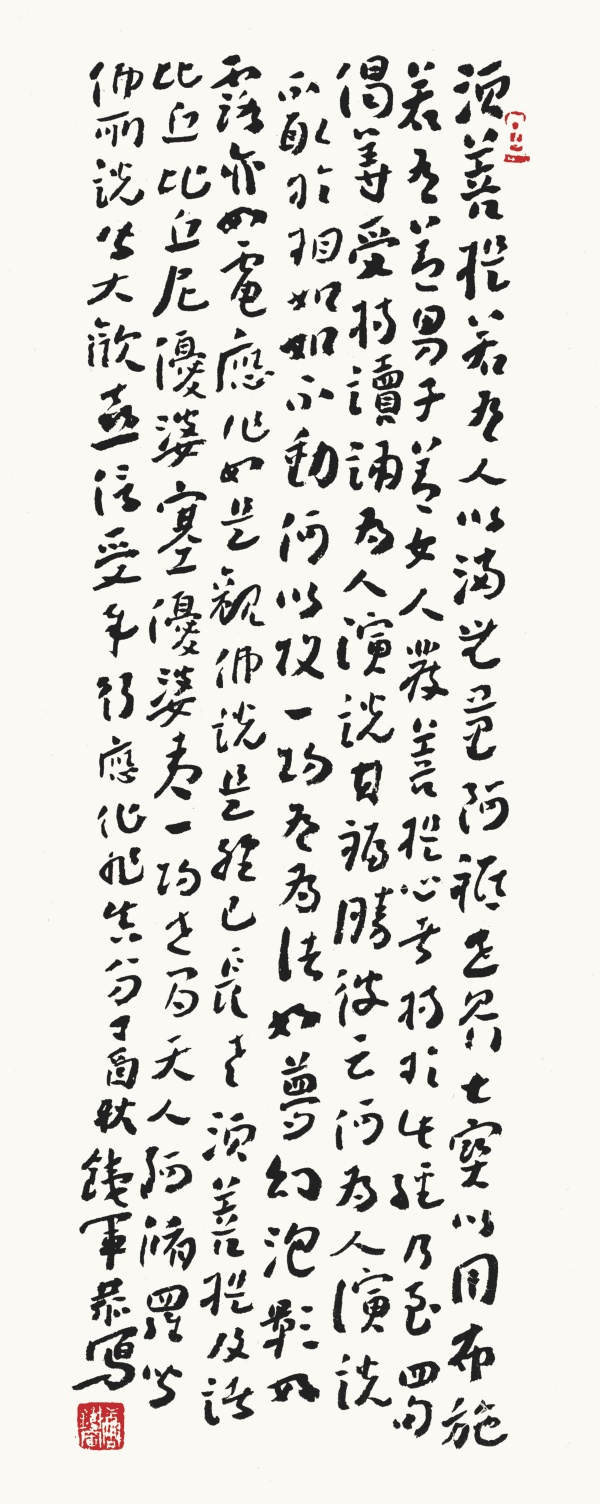 須菩提若有人以滿无量阿祇世界七寶以用布施
若有善男子善女人發菩提心者持於此經乃至四句
偈等受持讀誦為人演說其福勝彼云何為人演說
不取於相如如不動何以故一切有為法如夢幻泡影如
露亦如電應作如是觀佛說是經已長老須菩提及諸
比丘比丘尼優婆塞優婆夷一切世間天人阿脩羅等
佛所說皆大歡喜信受奉行應化非真分丁酉秋軍恭寫